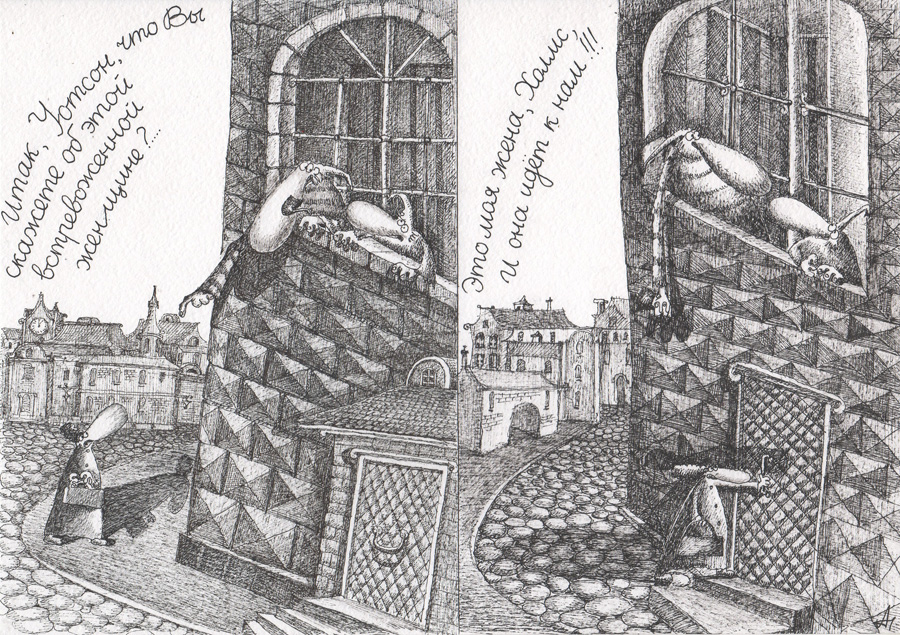 Итак, Уотсон, что Вы
скажете об этой
встревоженной
женщине?...
Это моя жена, Холмс,
и она идёт к нам!!!